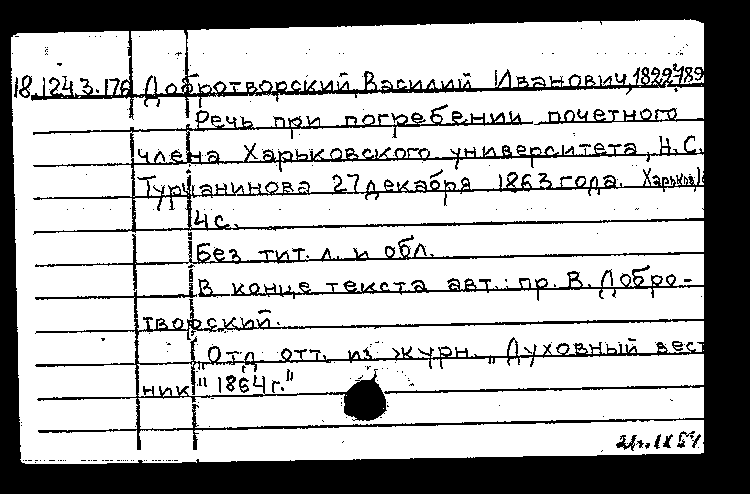 18.124.3.176 Добротворский, Василий Иванович, 1822-189
Речь при погребении почетного
члена Харьковского университета, Н.С.
Турчанинова 27 декабря 1863 года. Харьков,
4 с.
Без тит. л. и обл.
В конце текста авт.: пр. В. Добро-
творский.
„Отд. отт. из журн. „Духовный вест
ник" 1864 г."